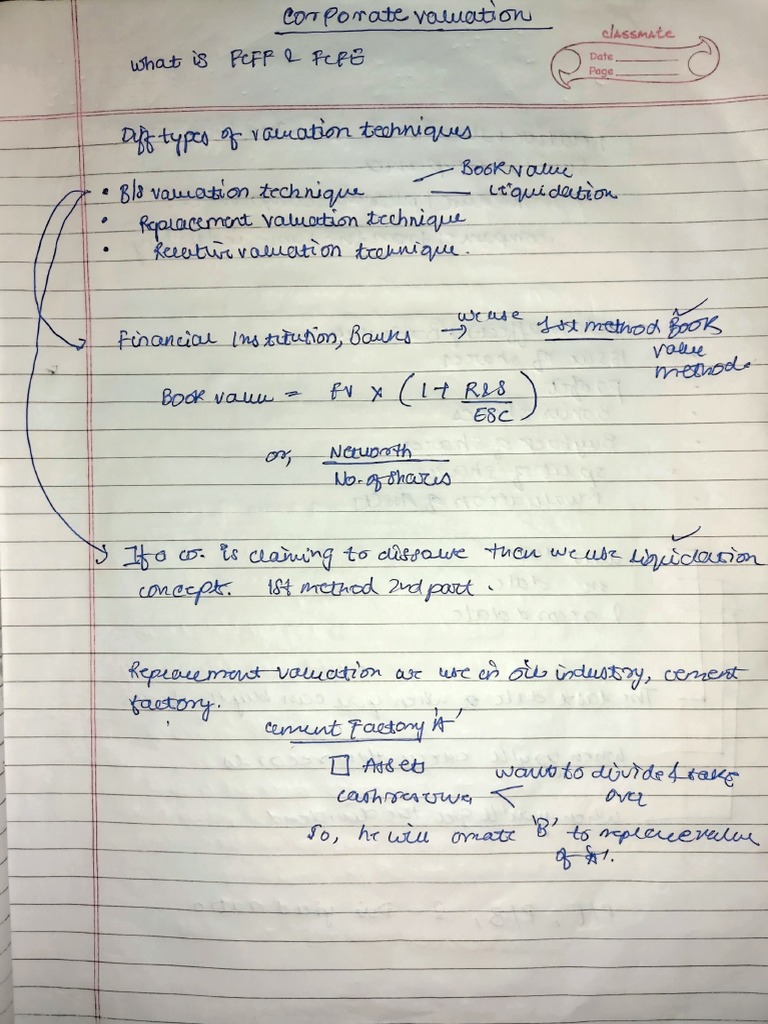 Corporate valuation
classmate
Date
Page
what is FCFF & FCFE
Diff types of valuation techniques
• B/S valuation technique — Book value
— Liquidation
• Replacement valuation technique
• Relative valuation technique.
Financial Institution, Banks → we use 1st method Book
value
method.
Book value = FV × (1+ R&S
ESC)
or, Networth
No. of shares
If a co. is claiming to dissolve then we use liquidation
concept. 1st method 2nd part.
Replacement valuation are use in oil industry, cement
factory.
cement Factory 'A'
□ Assets
cash reserve < wants to divide & take
over
So, he will create 'B' to replace value
of 'A'.